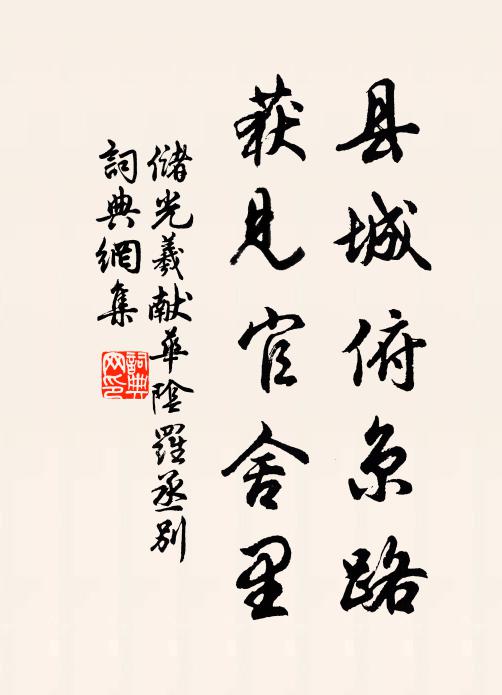 县城俯京路
获见官舍里
储光羲献华陰羅丞别
詞典網集
詞典网印